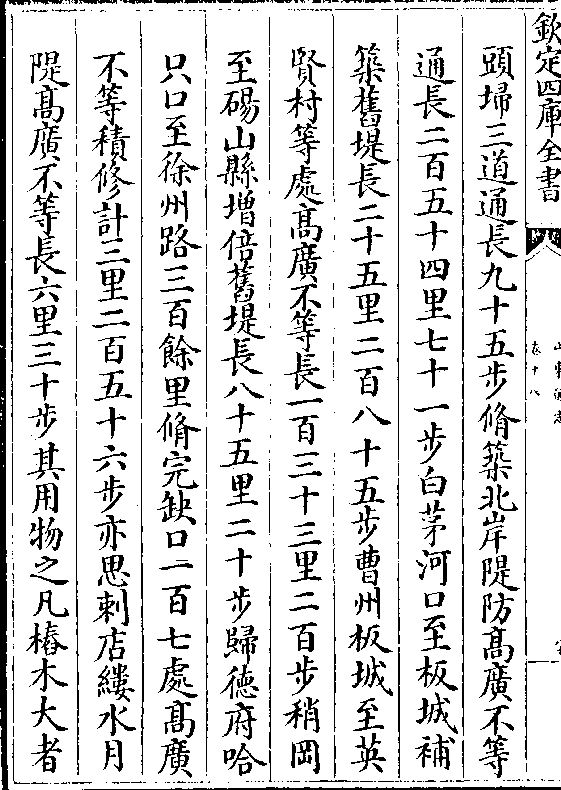 欽定四庫全書
卷十八
頭埽三道通長九十五步脩築北岸隄防髙廣不等
通長二百五十四里七十一步白茅河口至板城補
築舊堤長二十五里二百八十五步曹州板城至英
賢村等處髙廣不等長一百三十三里二百步稍岡
至碭山縣增倍舊堤長八十五里二十步歸德府哈
只口至徐州路三百餘里脩完缺口一百七處髙廣
不等積修計三里二百五十六步亦思剌店縷水月
隄髙廣不等長六里三十步其用物之凡樁木大者